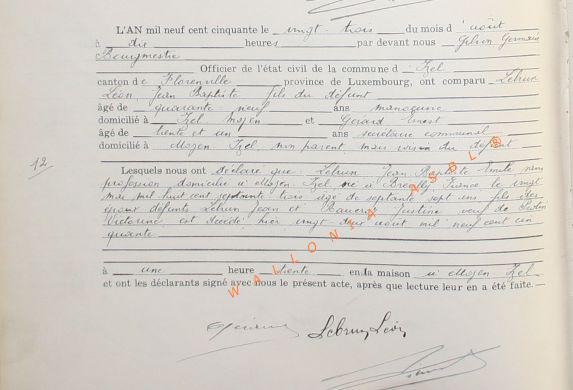 L'AN mil neuf cent cinquante le vingt-trois du mois d'août
à dix heures par devant nous Gilson Germain
Bourgmestre
Officier de l'état civil de la commune d'Izel
canton de Florenville province de Luxembourg, ont comparu Lebrun
Léon, Jean Baptiste fils du défunt
âgé de quarante-neuf ans manœuvre
domicilié à Izel Moyen et Gérard Ernest
âgé de trente et un ans secrétaire communal
domicilié à Moyen Izel non parent, mais voisin du défunt
12
Lesquels nous ont déclaré que Lebrun Jean Baptiste Emile sans
profession domicilié à Moyen Izel né à Breuilly France le vingt
mai mil huit cent septante trois âgé de septante sept ans fils des
époux défunts Lebrun Jean et Justine veuf de
Victorine, est décédé hier vingt-deux août mil neuf cent cin
quante
à une heure trente en la maison à Moyen Izel
et ont les déclarants signé avec nous le présent acte, après que lecture leur en a été faite. —
Lebrun Léon
WALLONIA ASBL ©